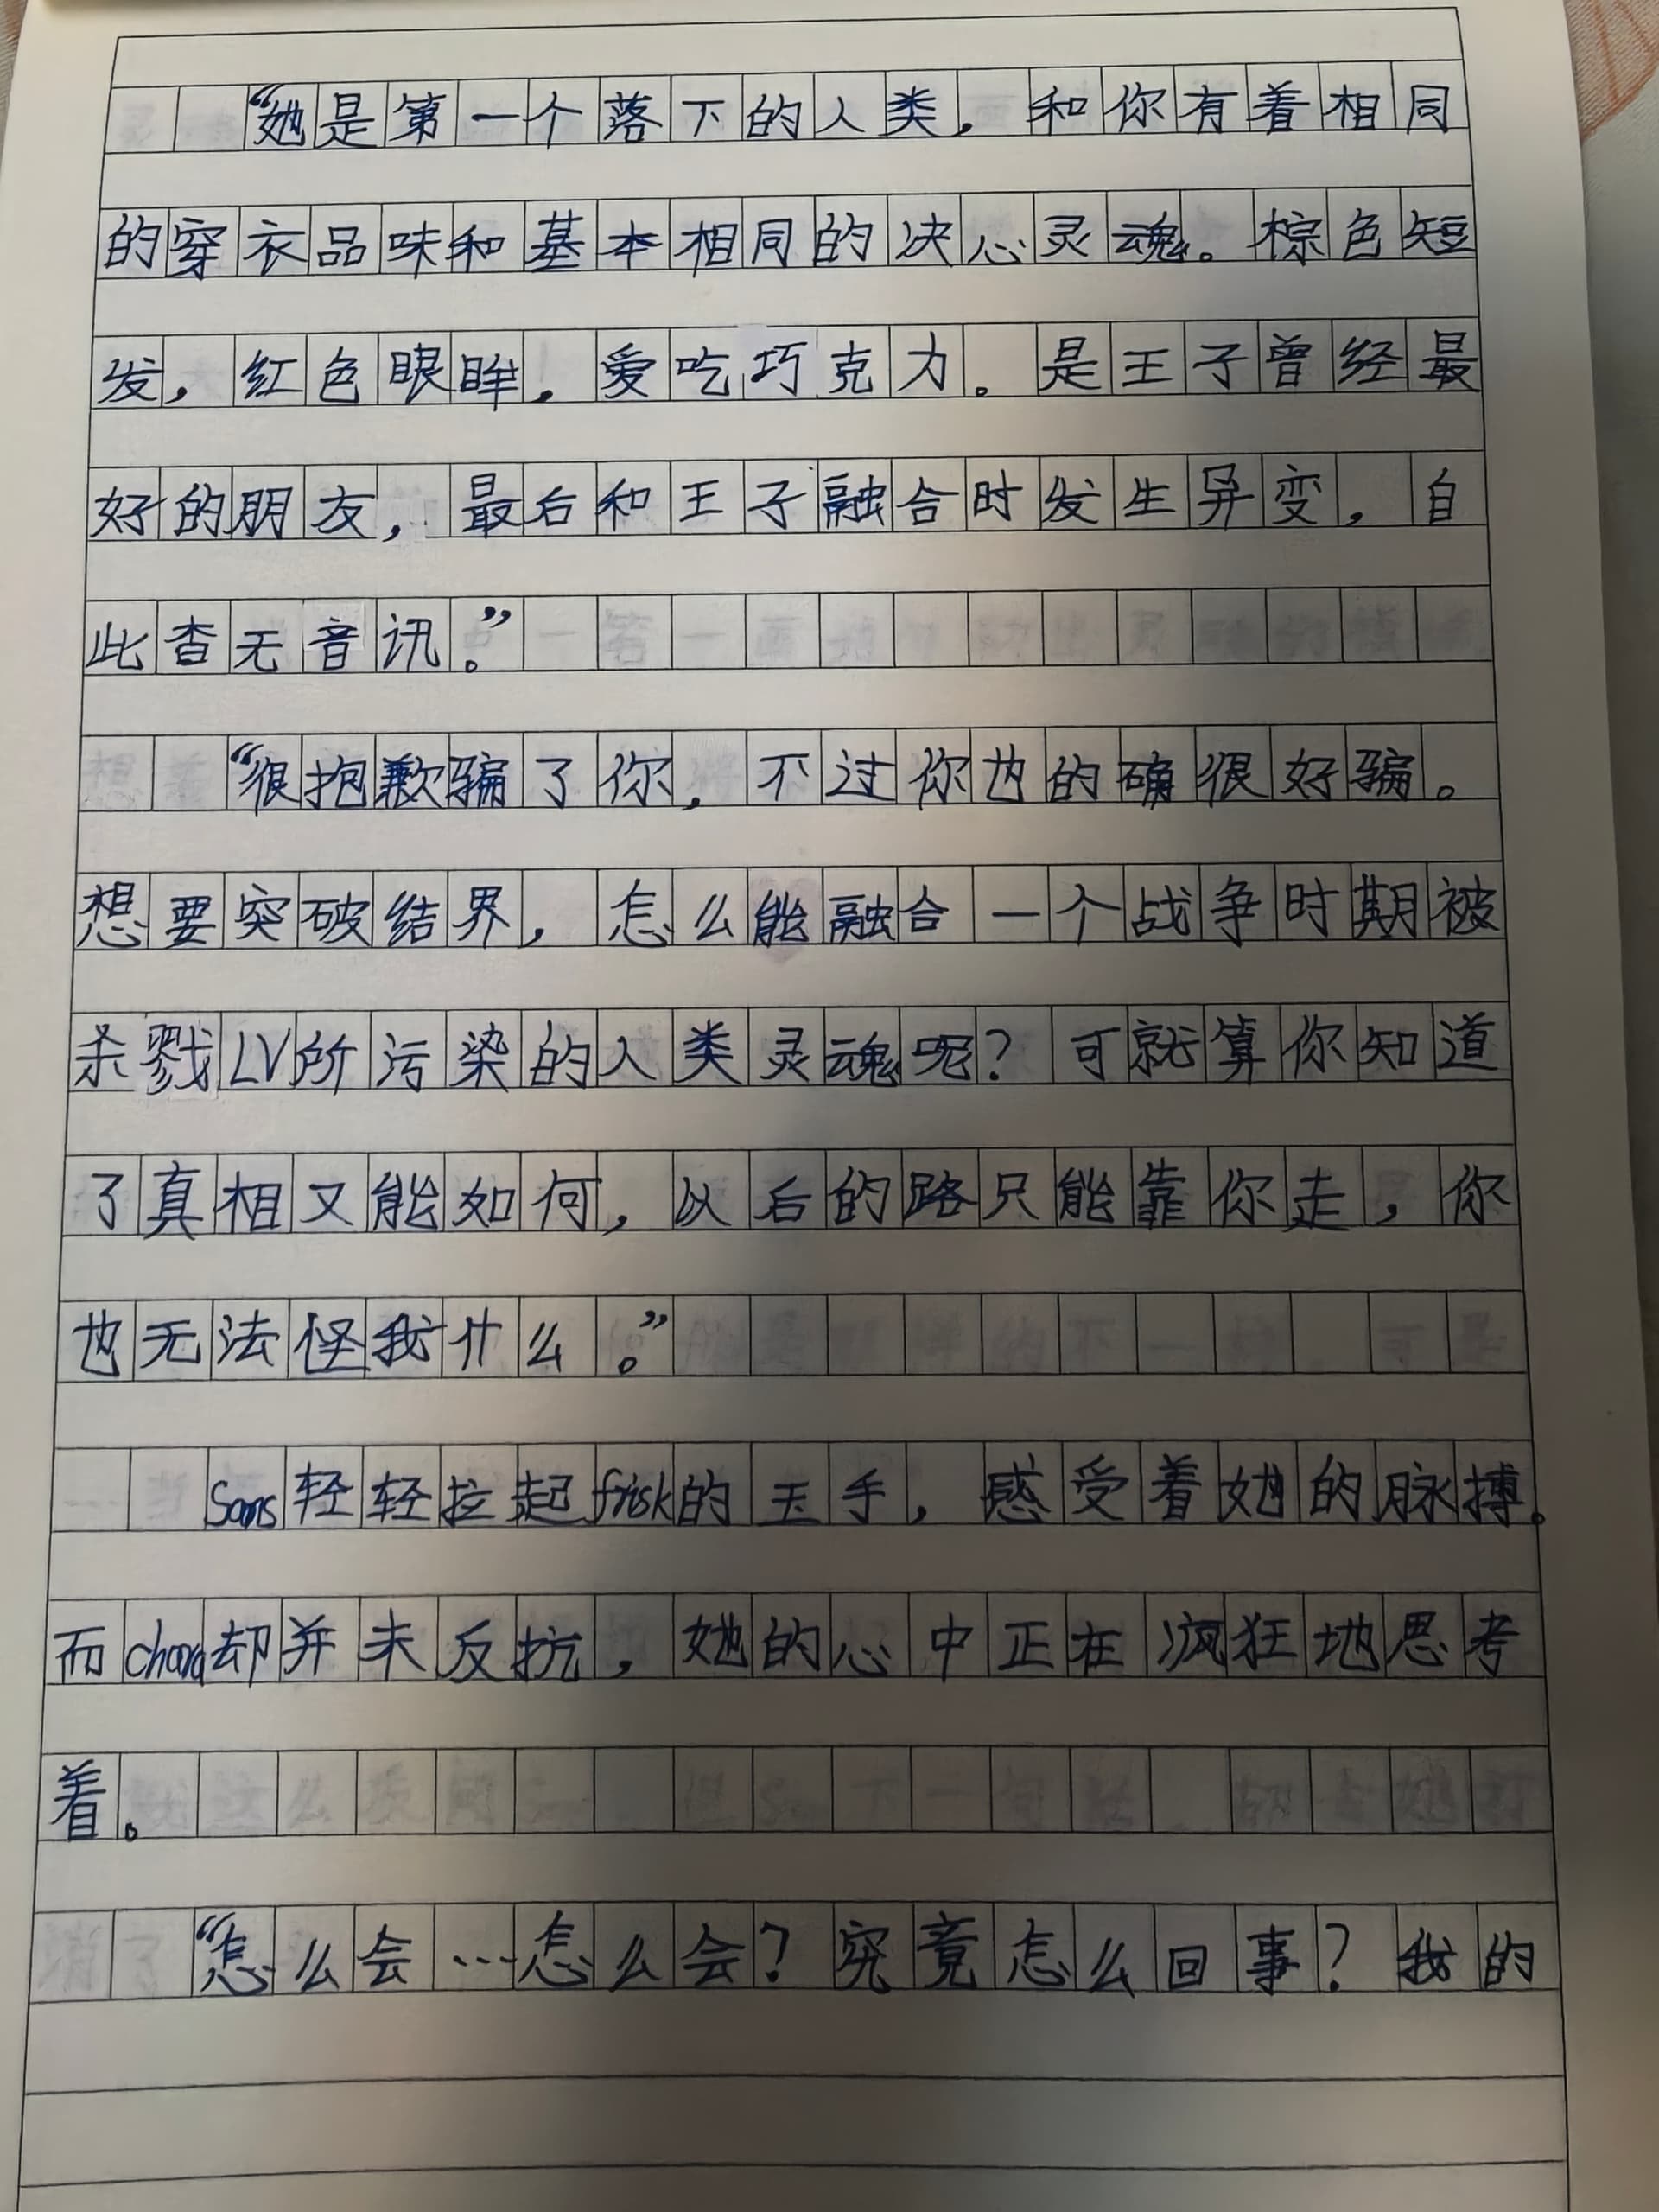 “她是第一个落下的人类，和你有着相同
的穿衣品味和基本相同的决心灵魂。棕色短
发，红色眼眸，爱吃巧克力。是王子曾经最
好的朋友，最后和王子融合时发生异变，自
此杳无音讯。”
“很抱歉骗了你，不过你也的确很好骗。
想要突破结界，怎么能融合一个战争时期被
杀戮LV所污染的人类灵魂呢？可就算你知道
了真相又能如何，以后的路只能靠你走，你
也无法怪我什么。”
Sans轻轻拉起frisk的玉手，感受着她的脉搏。
而chara却并未反抗，她的心中正在疯狂地思考
着。
“怎么会…怎么会？究竟怎么回事？我的